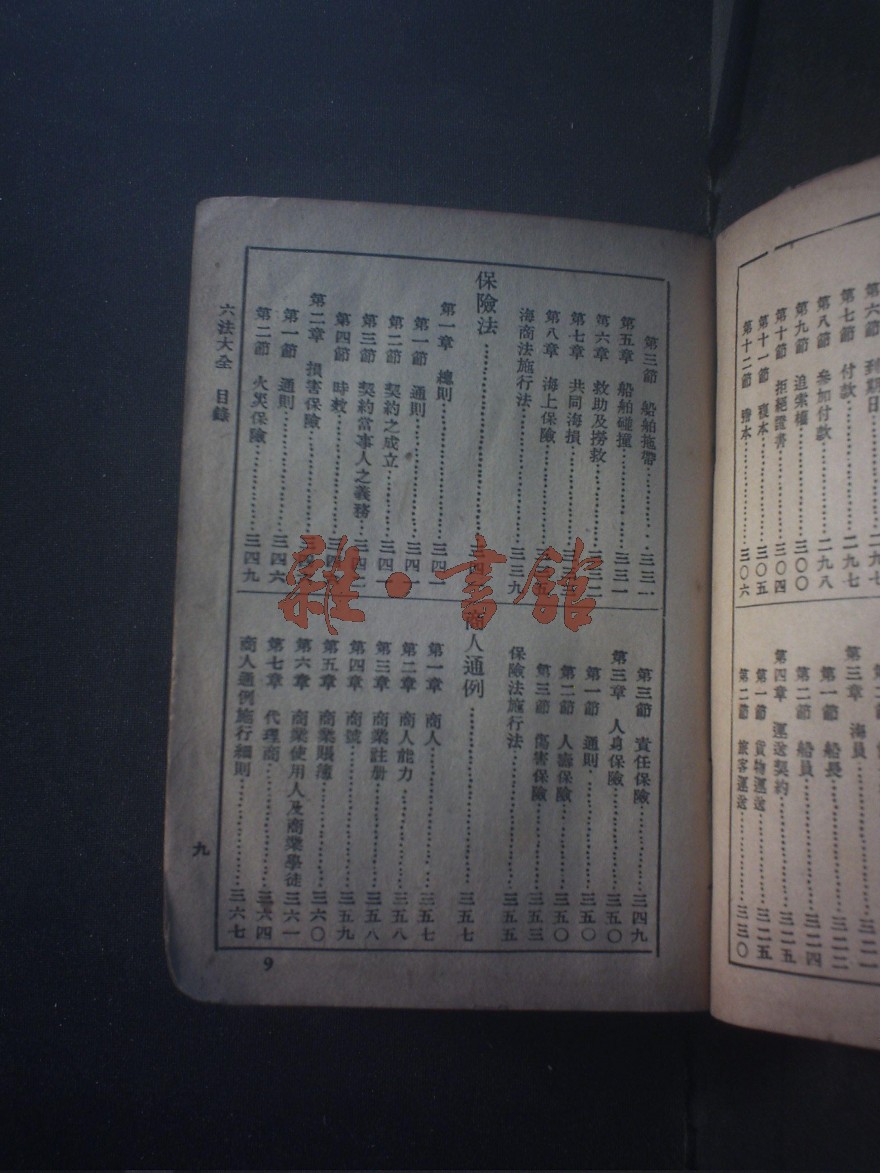 第六節 到期日……二九七
第七節 付款……二九七
第八節 參加付款……二九八
第九節 追索權……三〇〇
第十節 拒絕證書……三〇四
第十一節 複本……三〇五
第十二節 謄本……三〇六
第三章 海員……三二一
第一節 船長……三二二
第二節 船員……三二四
第四章 運送契約……三二五
第一節 貨物運送……三二五
第二節 旅客運送……三三〇
第三節 船舶拖帶……三三一
第五章 船舶碰撞……三三一
第六章 救助及撈救……三三二
第七章 共同海損……三三三
第八章 海上保險……三三五
海商法施行法……三三九
保險法……三四一
第一章 總則……三四一
第一節 通則……三四一
第二節 契約之成立……三四一
第三節 契約當事人之義務……三四二
第四節 時效……三四
第二章 損害保險……三四六
第一節 通則……三四六
第二節 火災保險……三四九
第三節 責任保險……三四九
第三章 人身保險……三五〇
第一節 通則……三五〇
第二節 人壽保險……三五〇
第三節 傷害保險……三五三
保險法施行法……三五五
商人通例……三五七
第一章 商人……三五七
第二章 商人能力……三五八
第三章 商業註册……三五八
第四章 商號……三五九
第五章 商業賬簿……三六〇
第六章 商業使用人及商業學徒……三六一
第七章 代理商……三六四
商人通例施行細則……三六七
六法大全 目錄
九
9
雜·書館